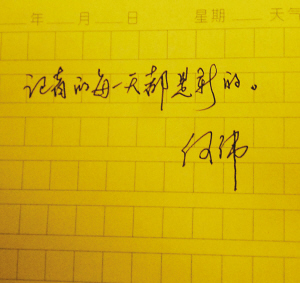 年 月 日 星期 天气
记者的每一天都是新的。
何伟